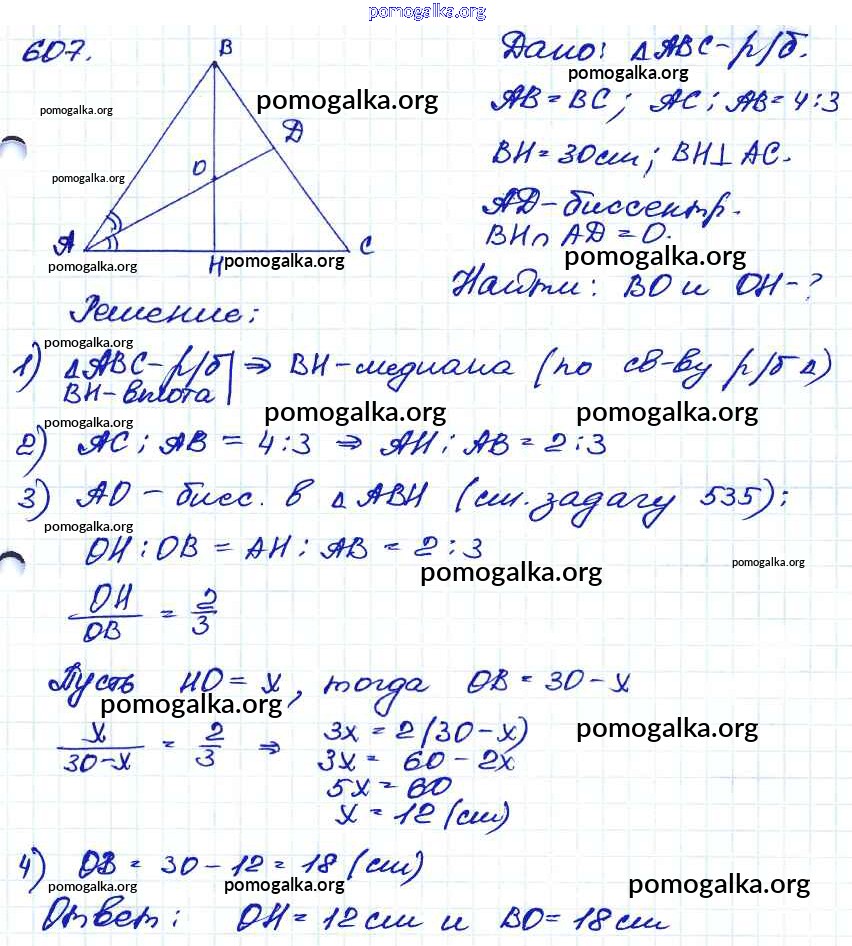 pomogalka.org
607.
B
Дано: △ABC-р/б.
pomogalka.org
pomogalka.org
pomogalka.org
AB=BC; AC:AB=4:3
Д
O
BH=30см; BH⊥AC.
pomogalka.org
АД-биссектр.
A
C
BH∩AД=O.
H
pomogalka.org
pomogalka.org
pomogalka.org
Найти: BO и OH-?
Решение:
pomogalka.org
1) △ABC-р/б | ⇒ BH-медиана (по св-ву р/б △)
BH-высота |
pomogalka.org
pomogalka.org
pomogalka.org
2) AC:AB=4:3 ⇒ AH:AB=2:3
pomogalka.org
3) AO-бисс. в △ABH (см. задачу 535):
pomogalka.org
OH:OB=AH:AB=2:3
pomogalka.org
pomogalka.org
OH/OB = 2/3
Пусть HO=x, тогда OB=30-x
pomogalka.org
pomogalka.org
x/30-x = 2/3 ⇒ 3x=2(30-x)
3x=60-2x
5x=60
x=12(см)
4) OB=30-12=18(см)
pomogalka.org
pomogalka.org
pomogalka.org
Ответ: OH=12см и BO=18см